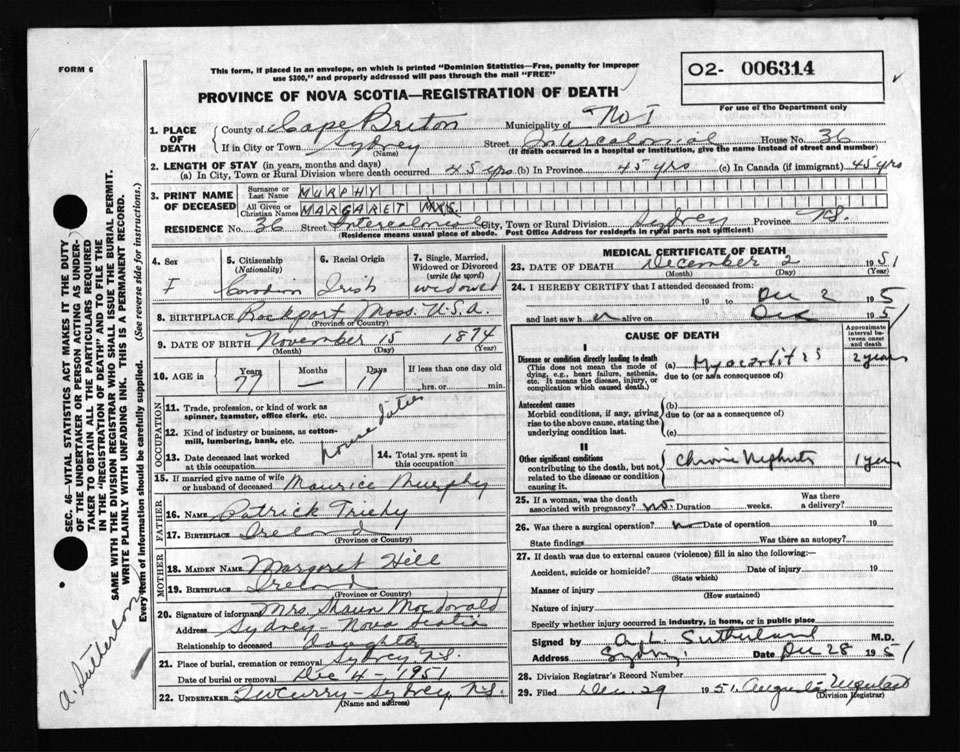 FORM 6
This form, if placed in an envelope, on which is printed "Dominion Statistics—Free, penalty for improper
use $300," and properly addressed will pass through the mail "FREE"
O2- 006314
For use of the Department only
PROVINCE OF NOVA SCOTIA—REGISTRATION OF DEATH
1. PLACE OF DEATH
County of Cape Breton Municipality of No 1
If in City or Town Sydney (Name) Street Intercolonial House No. 36
(If death occurred in a hospital or institution, give the name instead of street and number)
2. LENGTH OF STAY (in years, months and days)
(a) In City, Town or Rural Division where death occurred 45 yrs (b) in Province 45 yrs (c) in Canada (if immigrant) 45 yrs
3. PRINT NAME OF DECEASED
Surname or Last Name MURPHY
All Given or Christian Names MARGARET MRS.
RESIDENCE No. 36 Street Intercolonial City, Town or Rural Division Sydney Province N.S.
(Residence means usual place of abode. Post Office Address for residents in rural parts not sufficient)
4. Sex F
5. Citizenship (Nationality) Canadian
6. Racial Origin Irish
7. Single, Married, Widowed or Divorced (write the word) widowed
8. BIRTHPLACE Rockport Mass. U.S.A.
(Province or Country)
9. DATE OF BIRTH November 15 1874
(Month) (Day) (Year)
10. AGE in Years 77 Months — Days 17 If less than one day old
hrs. or min.
OCCUPATION
11. Trade, profession, or kind of work as
spinner, teamster, office clerk, etc.
house duties
12. Kind of industry or business, as cotton-
mill, lumbering, bank, etc.
13. Date deceased last worked
at this occupation
14. Total yrs. spent in
this occupation
15. If married give name of wife
or husband of deceased Maurice Murphy
FATHER
16. NAME Patrick
17. BIRTHPLACE Ireland
(Province or Country)
MOTHER
18. MAIDEN NAME Margaret Hill
19. BIRTHPLACE Ireland
(Province or Country)
20. Signature of informant Mrs. Shaun Macdonald
Address Sydney - Nova Scotia
Relationship to deceased Daughter
21. Place of burial, cremation or removal Sydney N.S.
Date of burial or removal Dec 4 - 1951
22. UNDERTAKER Curry - Sydney N.S.
(Name and address)
MEDICAL CERTIFICATE OF DEATH
23. DATE OF DEATH December 2 1951
(Month) (Day) (Year)
24. I HEREBY CERTIFY that I attended deceased from:
19 to Dec 2 195
and last saw her alive on Dec 195
CAUSE OF DEATH
Approximate interval between onset and death
I
Disease or condition directly leading to death
(This does not mean the mode of
dying, e.g., heart failure, asthenia,
etc. It means the disease, injury, or
complication which caused death.)
(a) Myocarditis 2 years
due to (or as a consequence of)
Antecedent causes
Morbid conditions, if any, giving
rise to the above cause, stating the
underlying condition last.
(b)
due to (or as a consequence of)
(c)
II
Other significant conditions
contributing to the death, but not
related to the disease or condition
causing it
Chronic Nephritis 1 year
25. If a woman, was the death
associated with pregnancy? no. Duration weeks. Was there
a delivery?
26. Was there a surgical operation? no Date of operation 19
State findings Was there an autopsy?
27. If death was due to external causes (violence) fill in also the following:—
Accident, suicide or homicide? Date of injury 19
(State which)
Manner of injury
(How sustained)
Nature of injury
Specify whether injury occurred in industry, in home, or in public place
Signed by A. L. Sutherland M.D.
Address Sydney. Date Dec 28 1951
28. Division Registrar's Record Number
29. Filed Dec 29 1951.
(Division Registrar)
SEC. 46—VITAL STATISTICS ACT MAKES IT THE DUTY
OF THE UNDERTAKER OR PERSON ACTING AS UNDER-
TAKER TO OBTAIN ALL THE PARTICULARS REQUIRED
IN THE "REGISTRATION OF DEATH" AND TO FILE THE
SAME WITH THE DIVISION REGISTRAR WHO SHALL ISSUE THE BURIAL PERMIT.
WRITE PLAINLY WITH UNFADING INK. THIS IS A PERMANENT RECORD.
Every item of information should be carefully supplied. (See reverse side for instructions.)
A. Sutherland